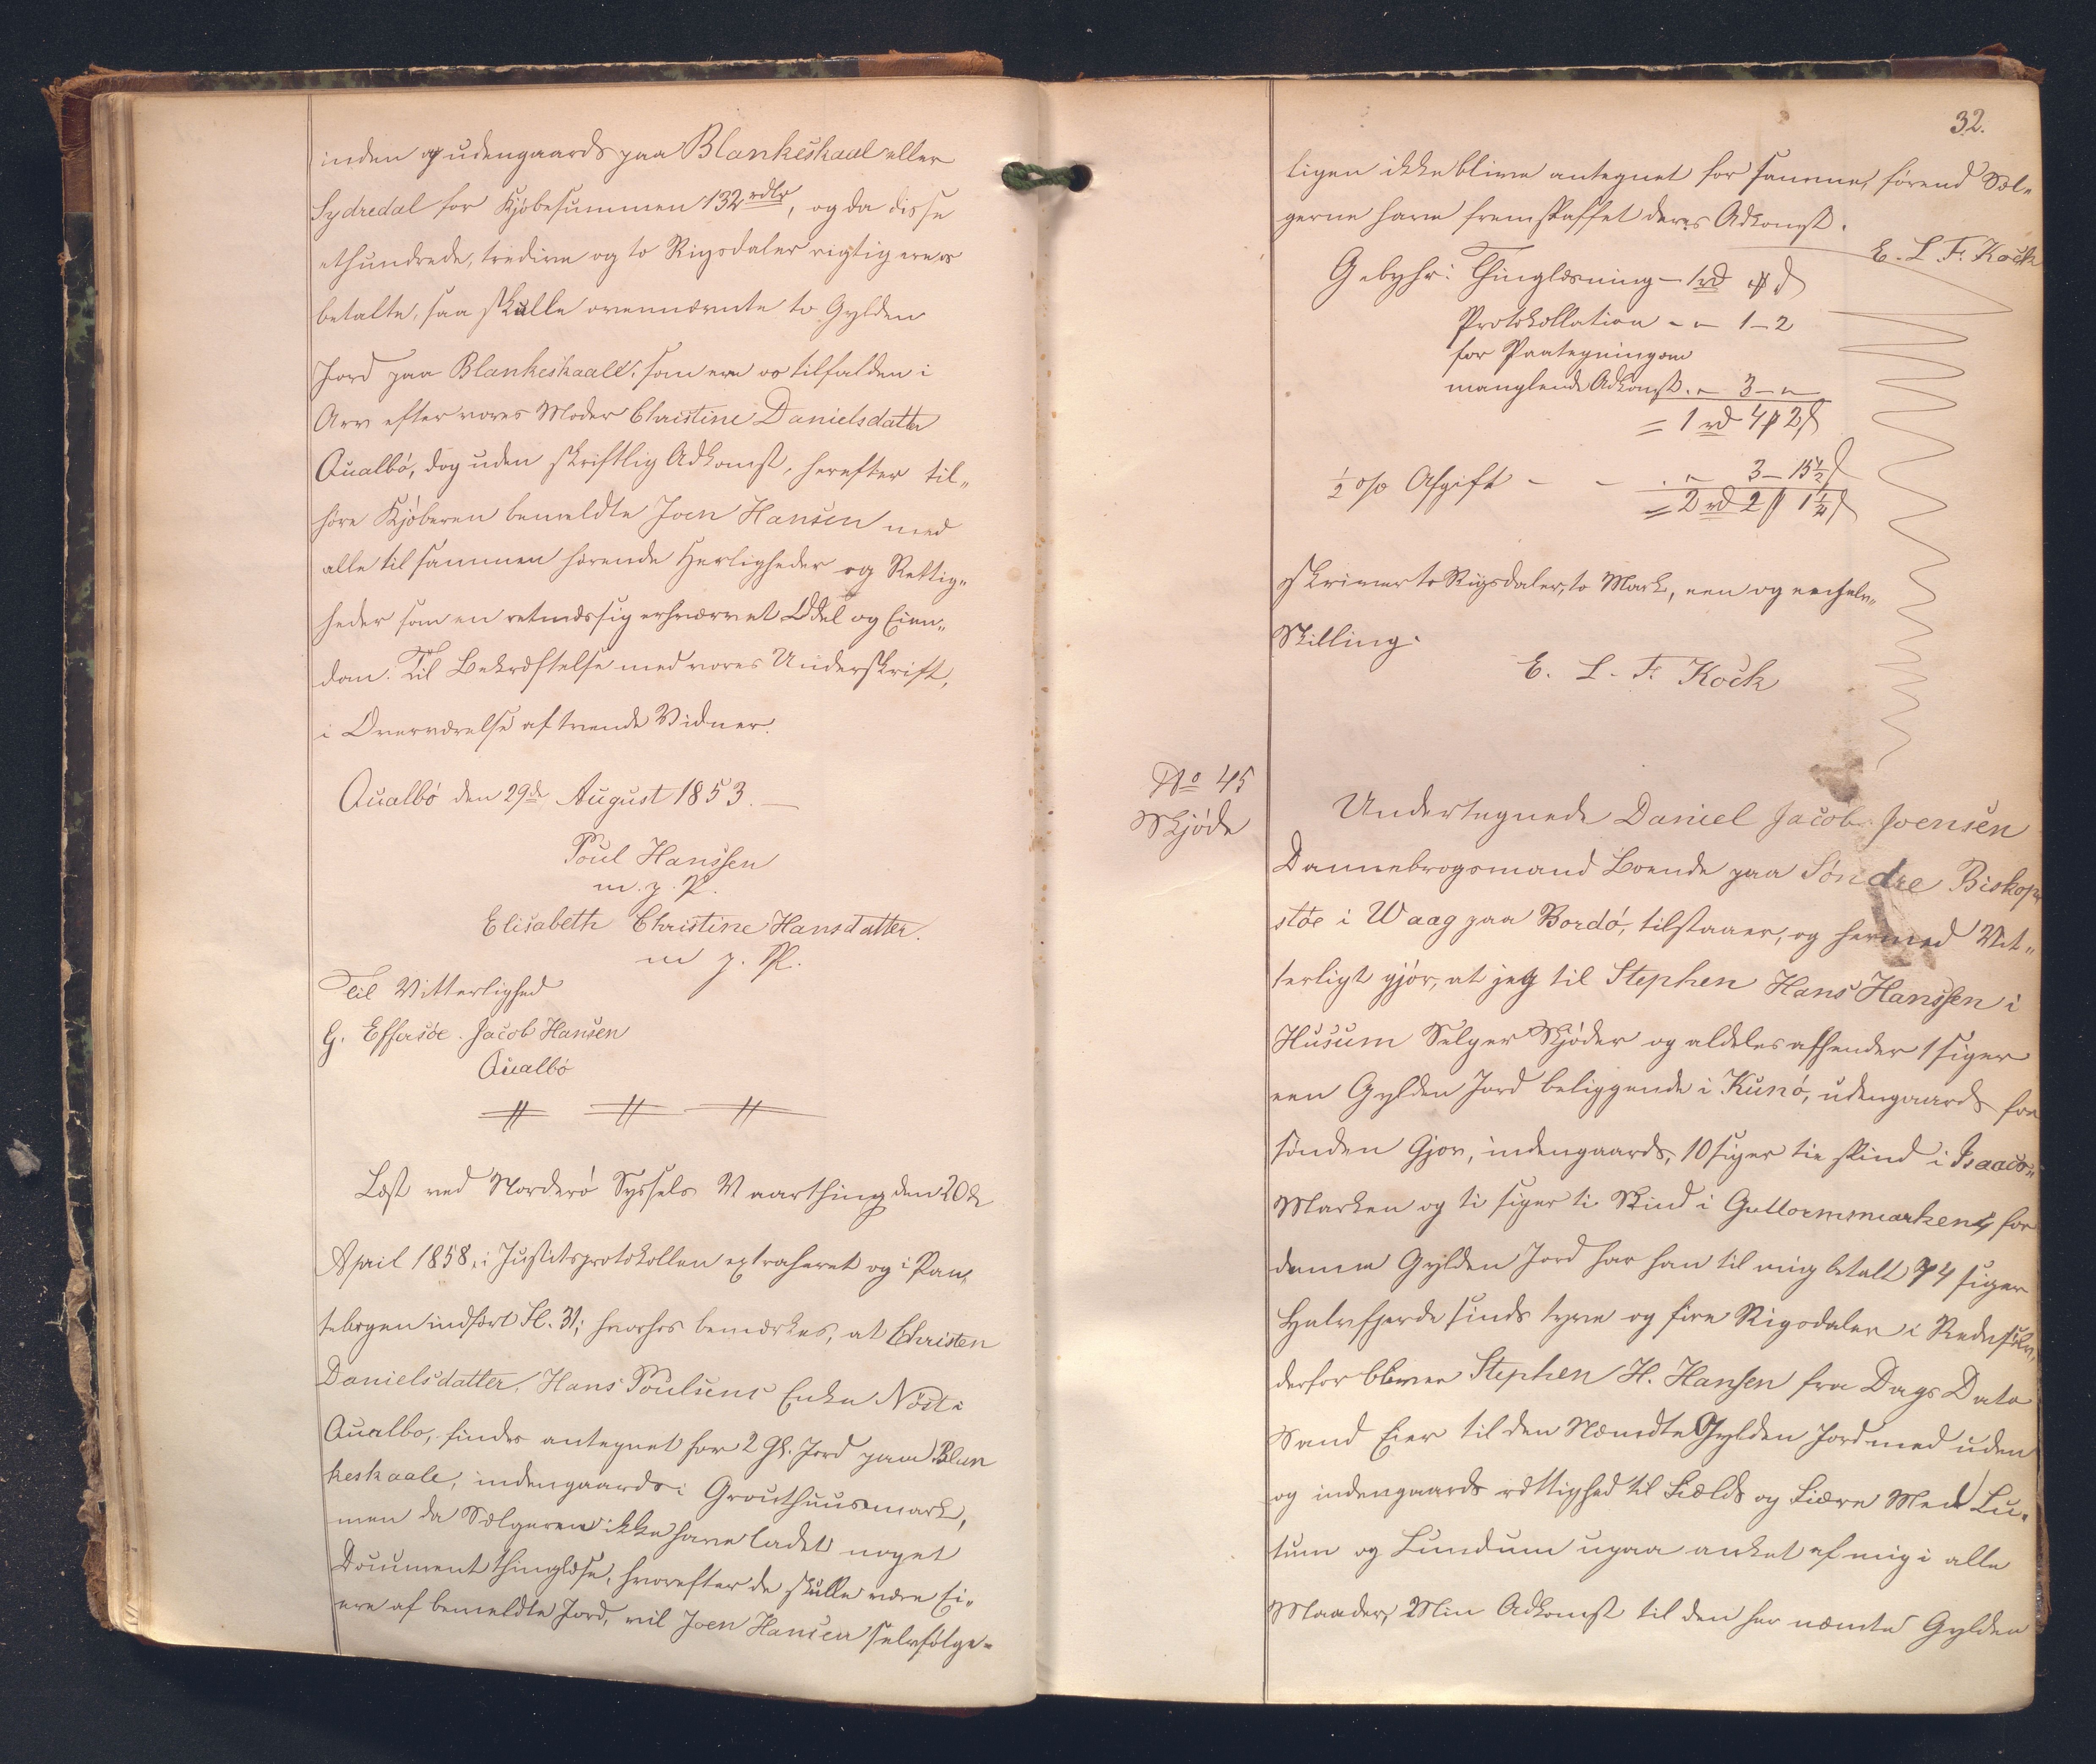 inden og udengaards paa Blankeskaal eller
Sydredal for Kjøbesummen 132 rdlr, og da disse
ethundrede, tredive og to Rigsdaler rigtig ere os
betalte, saa skulle ovennævnte to Gylden
Jord paa Blankeskaale, som ere os tilfalden i
Arv efter vores Moder Christine Danielsdatter
Qualbö, dog uden skriftlig Adkomst, herefter til„
høre Kjøberen bemeldte Joen Hansen med
alle til sammen hørende Herligheder og Rettig„
heder som en retmæssig erhvervet Odel og Eien„
dom. Til Bekræftelse med vores Underskrift,
i Overværelse af tvende Vidner.
Qualbö den 29de August 1853.
Poul Hanssen
m. p. P.
Elisabeth Christine Hansdatter.
m. p. P.
Til Vitterlighed
G. Effersöe. Jacob Hansen
Qualbö
Læst ved Norderö Syssels Vaarthing den 20de
April 1858, i Justitsprotokollen extraheret og i Pan„
tebogen indført Fl. 31; hvorhos bemærkes, at Christen
Danielsdatter, Hans Poulsens Enke Nöst i
Qualbo, findes antegnet for 2 Gl. Jord paa Blan
keskaale, indengaards i Grouthuusmark,
men da Sælgerne ikke have ladet noget
Document thinglæse, hvorefter de skulle være Ei„
ere af bemeldte Jord, vil Joen Hansen selvfølge„
32.
ligen ikke blive antegnet for samme, førend Sæl„
gerne have fremskaffet deres Adkomst.
E. L. F. Kock
Gebyhr: Thinglæsning – 1 rd ß
Protokollation - „ – 1 – 2
for Paategning om
manglende Adkomst. „ 3 – „
= 1 rd 4 ß 2 ß
½ o/o Afgift - - . „ 3 – 15½ ß
= 2 rd 2 ß 1½ ß
skriver to Rigsdaler, to Mark, een og een halv„
Skilling.
E. L. F. Kock
No 45
Skjøde
Undertegnede Daniel Jacob Joensen
Dannebrogsmand Boende paa Söndre Biskop
stöe i Waag paa Bordö, tilstaaer, og hermed Vit„
terligt gjör, at jeg til Stephen Hans Hanssen i
Husum Selger Skjøder og aldeles afhender 1 siger
een Gylden Jord beliggende i Kunö, udengaards for
sönden Gjov, indengaards, 10 siger tie skind i Isaacs„
Marken og ti siger ti Skind i Guttormmarken, for
denne Gylden Jord har han til mig betalt 74 siger
Halvfjerde sinds tyve og fire Rigsdaler i Rede sölv,
derfor bliver Stephen H. Hansen fra Dags Dato
Sand Eier til den Nævndte Gylden Jord med uden
og indengaards rettighed til Field og Fiære Med Lu„
tum og Lundum upaa anket af mig i alle
Maader, Min Adkomst til den her nævnte Gylden